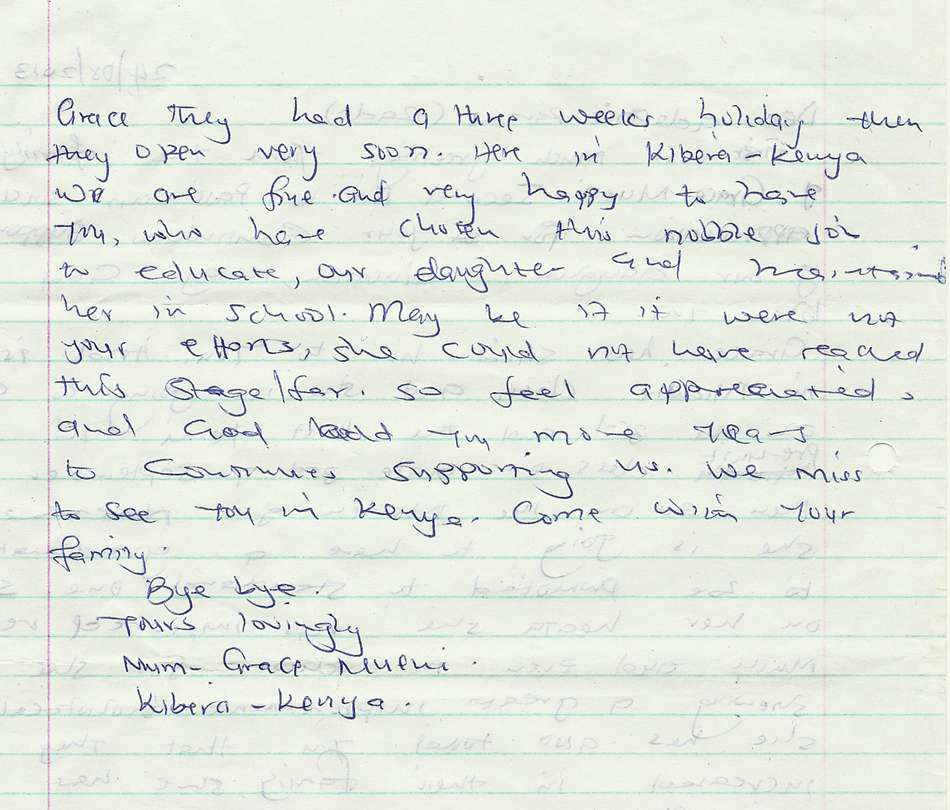 Grace They had a three weeks holiday then
they open very soon. Here in Kibera - Kenya
We are fine and very happy to have
You, who have chosen this nobble job
to educate, our daughter and
her in school. May be if it were not
your efforts, she could not have reached
this stage/far. So feel appreciated,
and God add you more years
to Continues supporting us. We miss
to see you in Kenya. Come with your
family.
Bye bye.
Yours lovingly
Mum - Grace
Kibera - Kenya.